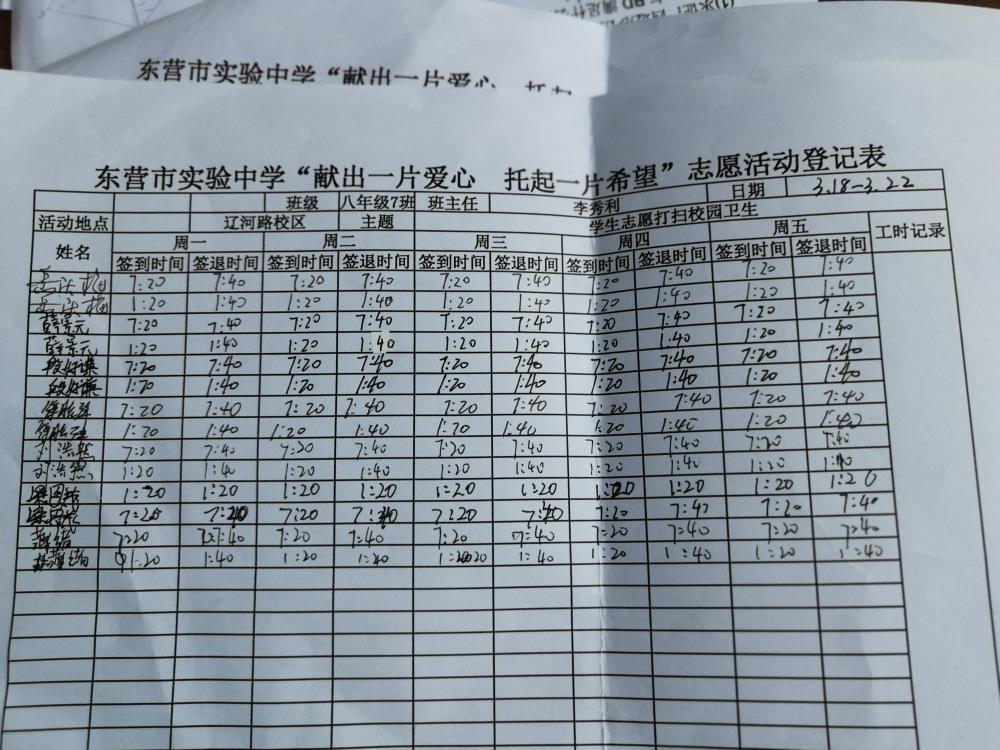 (1)求证:
东营市实验中学“献出一片爱心 托
东营市实验中学“献出一片爱心 托起一片希望”志愿活动登记表
班级 八年级7班 班主任 李秀利 日期 3.18-3.22
活动地点 辽河路校区 主题 学生志愿打扫校园卫生 工时记录
姓名 周一 周二 周三 周四 周五
签到时间 签退时间 签到时间 签退时间 签到时间 签退时间 签到时间 签退时间 签到时间 签退时间
7:20 7:40 7:20 7:40 7:20 7:40 7:20 7:40 7:20 7:40
1:20 1:40 1:20 1:40 1:20 1:40 1:20 1:40 1:20 1:40
薛景元 7:20 7:40 7:20 7:40 7:20 7:40 7:20 7:40 7:20 7:40
薛景元 1:20 1:40 1:20 1:40 1:20 1:40 1:20 1:40 1:20 1:40
7:20 7:40 7:20 7:40 7:20 7:40 7:20 7:40 7:20 7:40
1:20 1:40 1:20 1:40 1:20 1:40 1:20 1:40 1:20 1:40
7:20 7:40 7:20 7:40 7:20 7:40 7:20 7:40 7:20 7:40
1:20 1:40 1:20 1:40 1:20 1:40 1:20 1:40 1:20 1:40
刘浩然 7:20 7:40 7:20 7:40 7:20 7:40 7:20 7:40 7:20 7:40
刘浩然 1:20 1:40 1:20 1:40 1:20 1:40 1:20 1:40 1:20 1:40
1:20 1:20 1:20 1:20 1:20 1:20 1:20 1:20 1:20 1:20
7:20 7:40 7:20 7:40 7:20 7:40 7:20 7:40 7:20 7:40
7:20 7:40 7:20 7:40 7:20 7:40 7:20 7:40 7:20 7:40
1:20 1:40 1:20 1:40 1:20 1:40 1:20 1:40 1:20 1:40